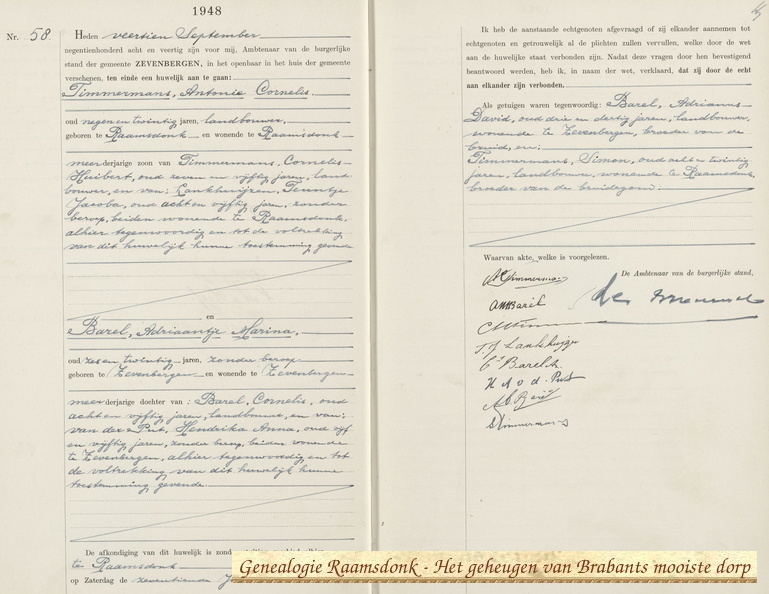 1948
Nr. 58.
Heden veertien September
negentienhonderd acht en veertig zijn voor mij, Ambtenaar van de burgerlijke
stand der gemeente ZEVENBERGEN, in het openbaar in het huis der gemeente
verschenen, ten einde een huwelijk aan te gaan:
Timmermans, Antonie Cornelis.
oud negen en twintig jaren, landbouwer,
geboren te Raamsdonk en wonende te Raamsdonk
meerderjarige zoon van Timmermans, Cornelis
Huibert, oud zeven en vijftig jaren, land-
bouwer, en van: Lankhuijzen, Teuntje
Jacoba, oud acht en vijftig jaren, zonder
beroep, beiden wonende te Raamsdonk,
alhier tegenwoordig en tot de voltrekking
van dit huwelijk hunne toestemming gevende
en
Barel, Adriaantje Marina,
oud zes en twintig jaren, zonder beroep
geboren te Zevenbergen en wonende te Zevenbergen
meerderjarige dochter van: Barel, Cornelis, oud
acht en vijftig jaren, landbouwer, en van:
van der Put, Hendrika Anna, oud vijf
en vijftig jaren, zonder beroep, beiden wonende
te Zevenbergen, alhier tegenwoordig en tot
de voltrekking van dit huwelijk hunne
toestemming gevende.
De afkondiging van dit huwelijk is zonder
te Raamsdonk
op Zaterdag de
Ik heb de aanstaande echtgenoten afgevraagd of zij elkander aannemen tot
echtgenoten en getrouwelijk al de plichten zullen vervullen, welke door de wet
aan de huwelijke staat verbonden zijn. Nadat deze vragen door hen bevestigend
beantwoord werden, heb ik, in naam der wet, verklaard, dat zij door de echt
aan elkander zijn verbonden.
Als getuigen waren tegenwoordig: Barel, Adrianus
David, oud drie en dertig jaren, landbouwer,
wonende te Zevenbergen, broeder van de
bruid, en:
Timmermans, Simon, oud acht en twintig
jaren, landbouwer, wonende te Raamsdonk
broeder van de bruidegom.
Waarvan akte, welke is voorgelezen.
De Ambtenaar van de burgerlijke stand,
Timmermans
AM Barel
T. J. Lankhuijzen
C. Barel
H A v d. Put
S Timmermans
Genealogie Raamsdonk - Het geheugen van Brabants mooiste dorp